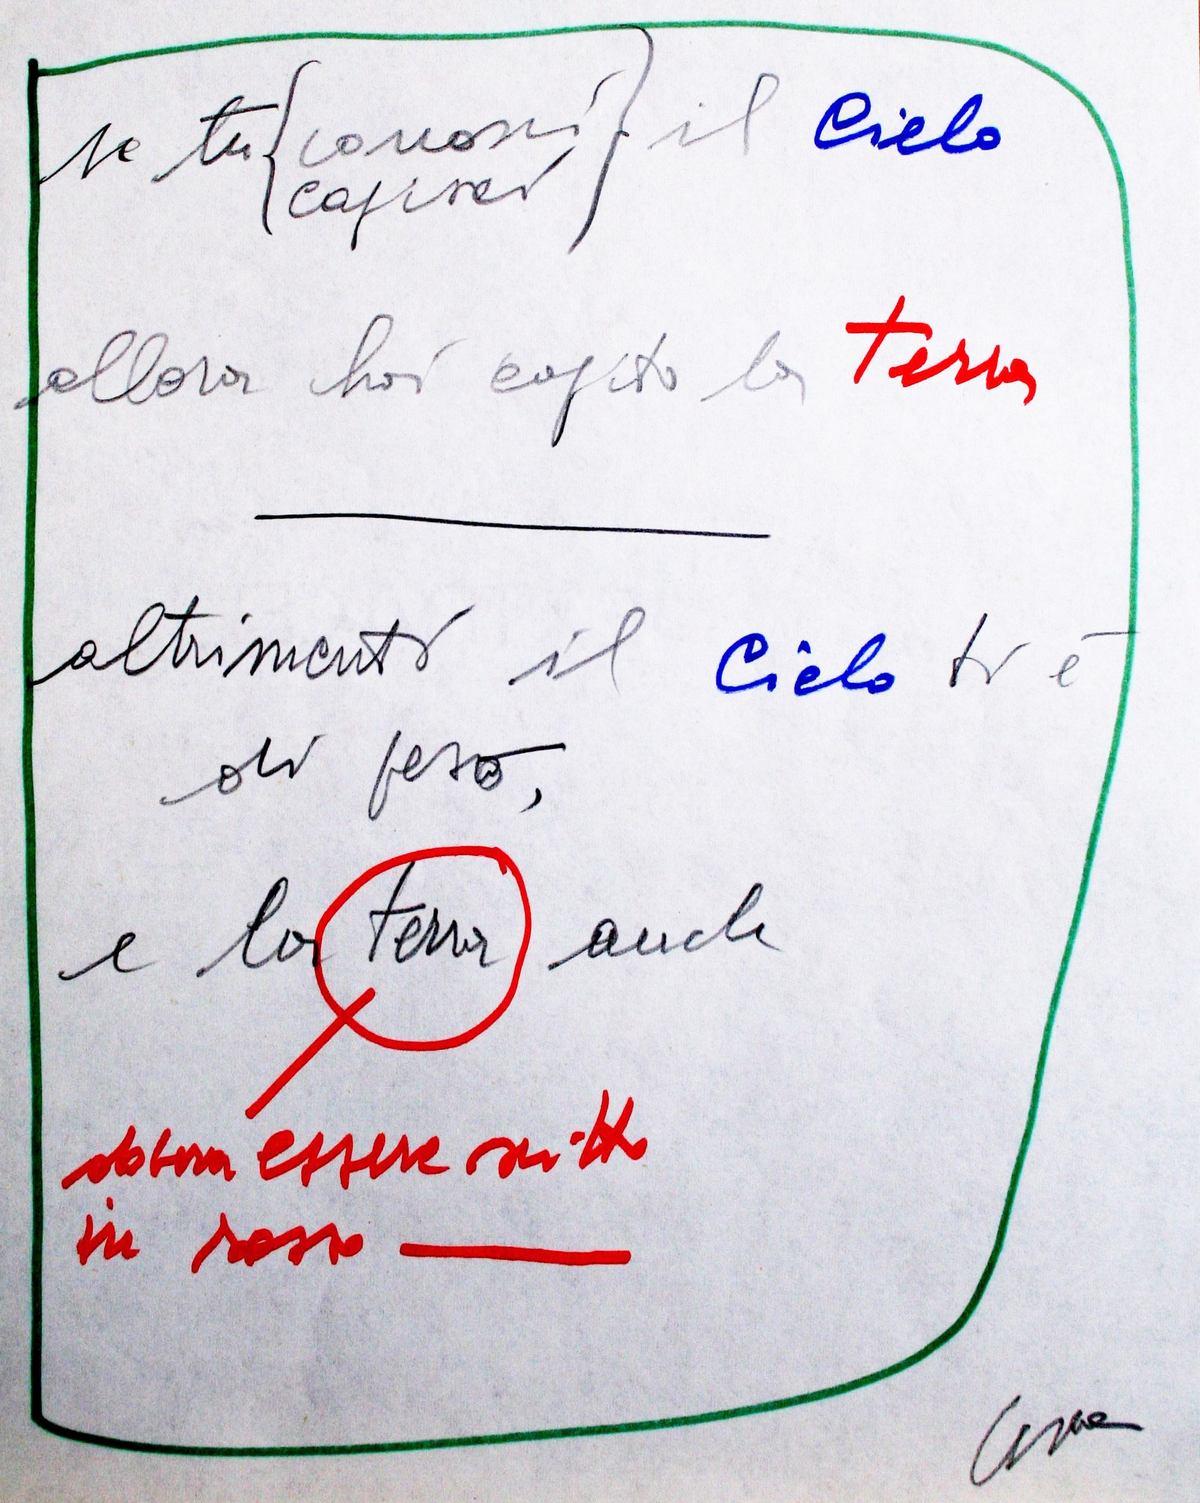 se tu { conosci } il Cielo
capisci
allora hai capito la Terra
altrimenti il Cielo ti è
di peso,
e la Terra anche
doveva essere scritto
in rosso